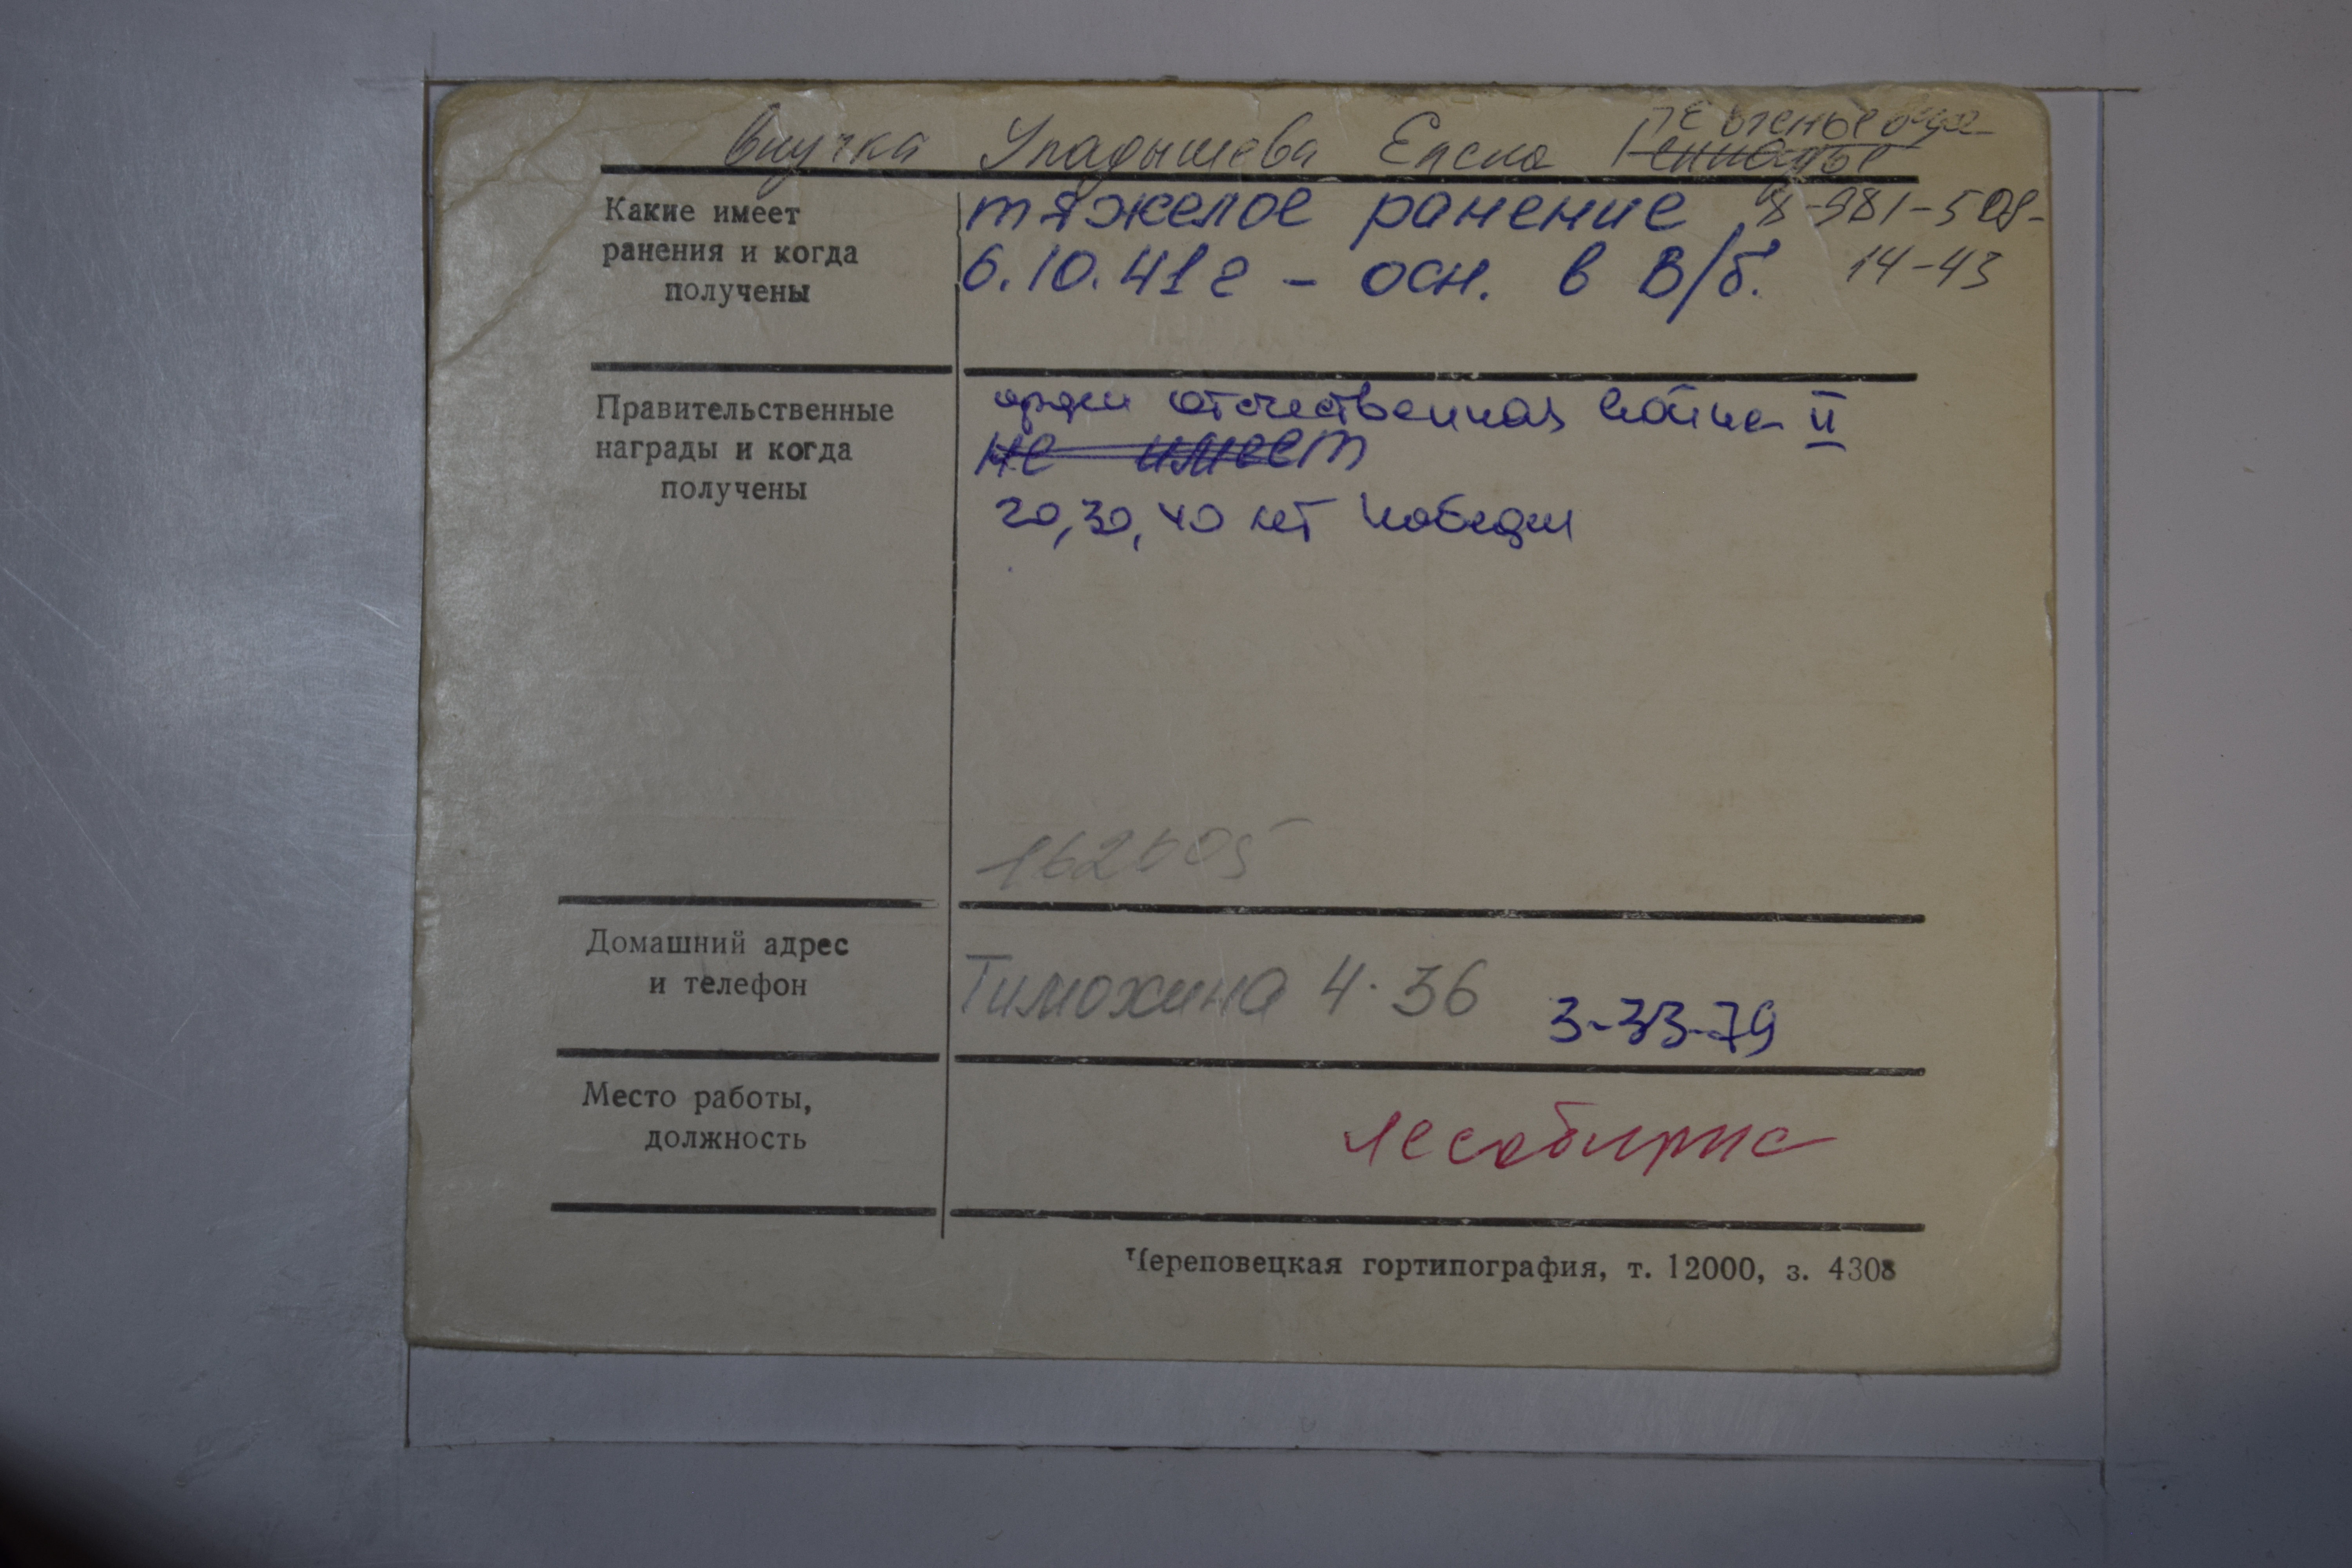 внучка Упадышева Елена
Какие имеет ранения и когда получены
тяжелое ранение 8-981-508-
6.10.41г - осн. в В/б. 14-43
Правительственные награды и когда получены
орден отечественная война II
не имеет
20, 30, 40 лет победы
Домашний адрес и телефон
Тимохина 4-36 3-33-79
Место работы, должность
лесобиржа
Череповецкая гортипография, т. 12000, з. 4308